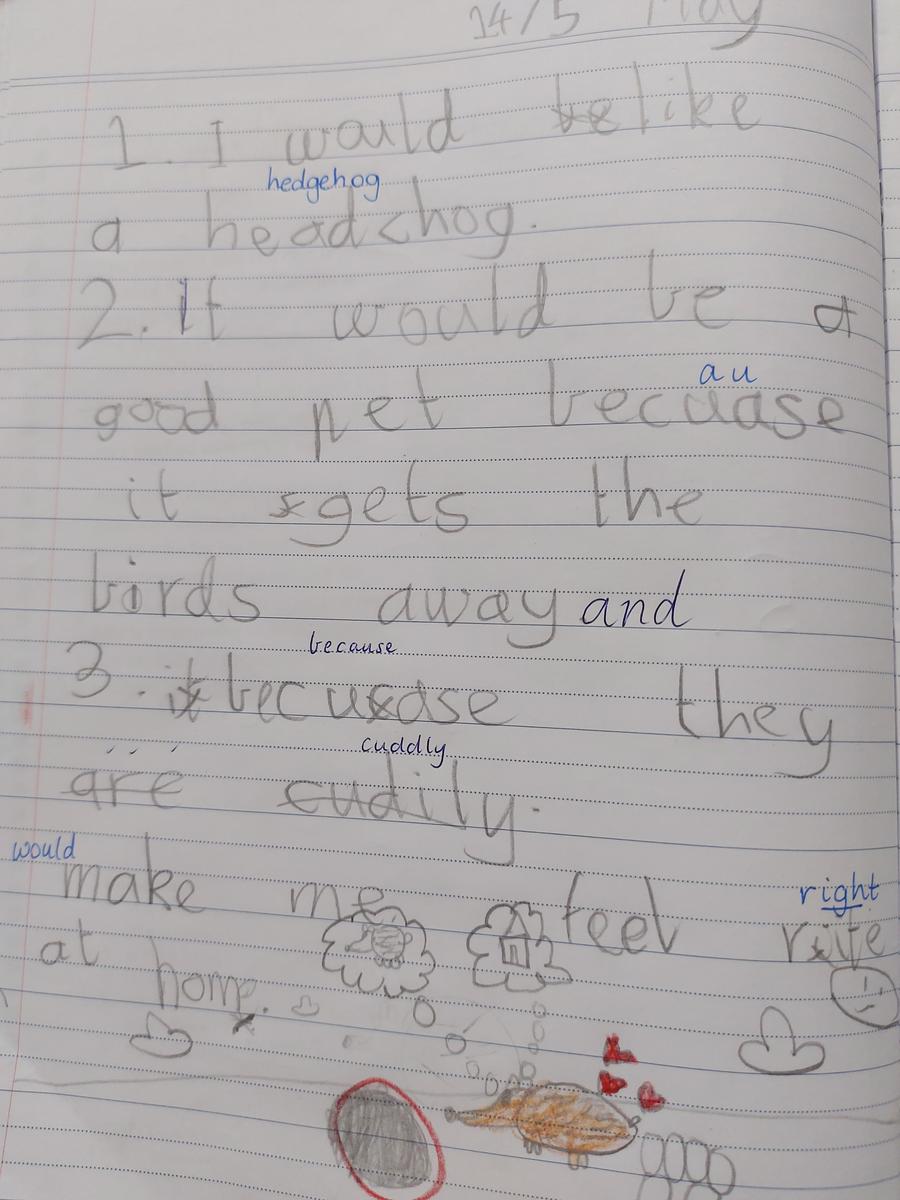 14/5 May
1. I would like
hedgehog
a headchog.
2. It would be a
au
good pet becuase
it gets the
birds away and
because
3. becuase they
cuddly
are cudily.
would
make me feel right
rite
at home.